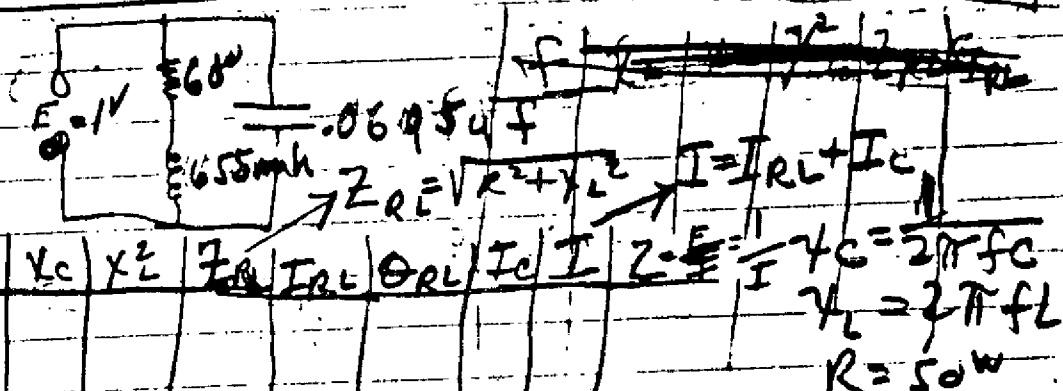 60ω
E = 1V
.06 μf
655mh
Z_RL = √R² + X_L²
I = I_RL + I_C
X_C | X_L² | Z_RL | I_RL | θ_RL | I_C | I | Z = E/I = 1/I
X_C = 1/2πfC
X_L = 2πfL
R = 50ω